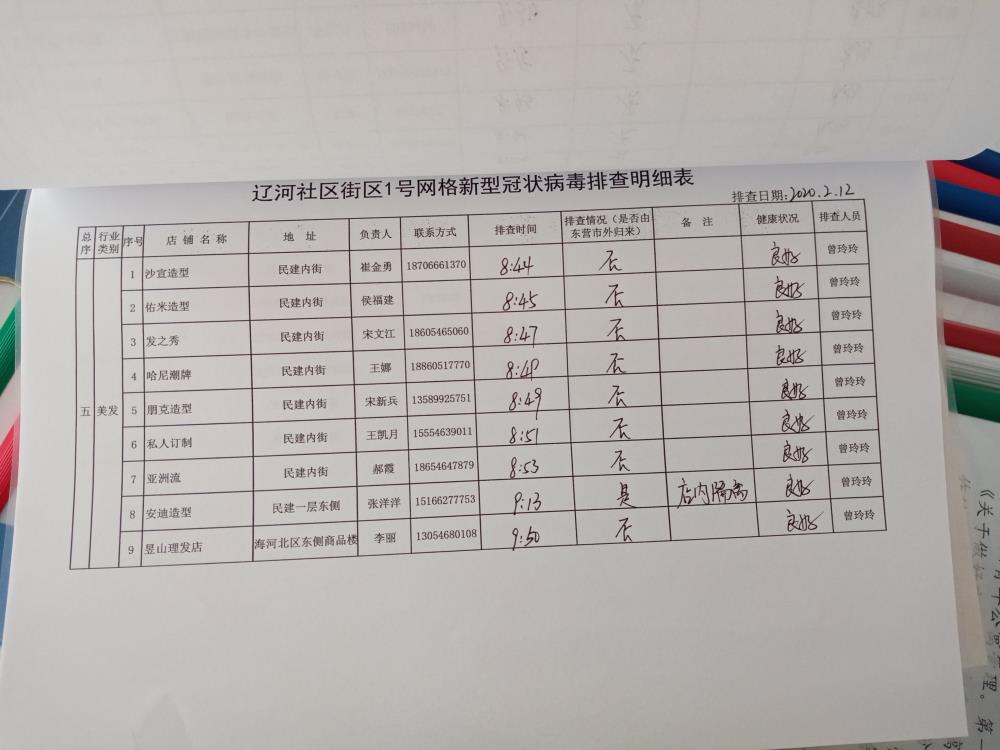 辽河社区街区1号网格新型冠状病毒排查明细表
排查日期:2020.2.12
总序 行业类别 序号 店铺名称 地址 负责人 联系方式 排查时间 排查情况（是否由东营市外归来） 备注 健康状况 排查人员
五 美发
1 沙宣造型 民建内街 崔金勇 18706661370 8:44 否 良好 曾玲玲
2 佑米造型 民建内街 侯福建 8:45 否 良好 曾玲玲
3 发之秀 民建内街 宋文江 18605465060 8:47 否 良好 曾玲玲
4 哈尼潮牌 民建内街 王娜 18860517770 8:49 否 良好 曾玲玲
5 朋克造型 民建内街 宋新兵 13589925751 8:49 否 良好 曾玲玲
6 私人订制 民建内街 王凯月 15554639011 8:51 否 良好 曾玲玲
7 亚洲流 民建内街 郝霞 18654647879 8:53 否 良好 曾玲玲
8 安迪造型 民建一层东侧 张洋洋 15166277753 9:13 是 店内隔离 良好 曾玲玲
9 昱山理发店 海河北区东侧商品楼 李丽 13054680108 9:50 否 良好 曾玲玲
《关于做好